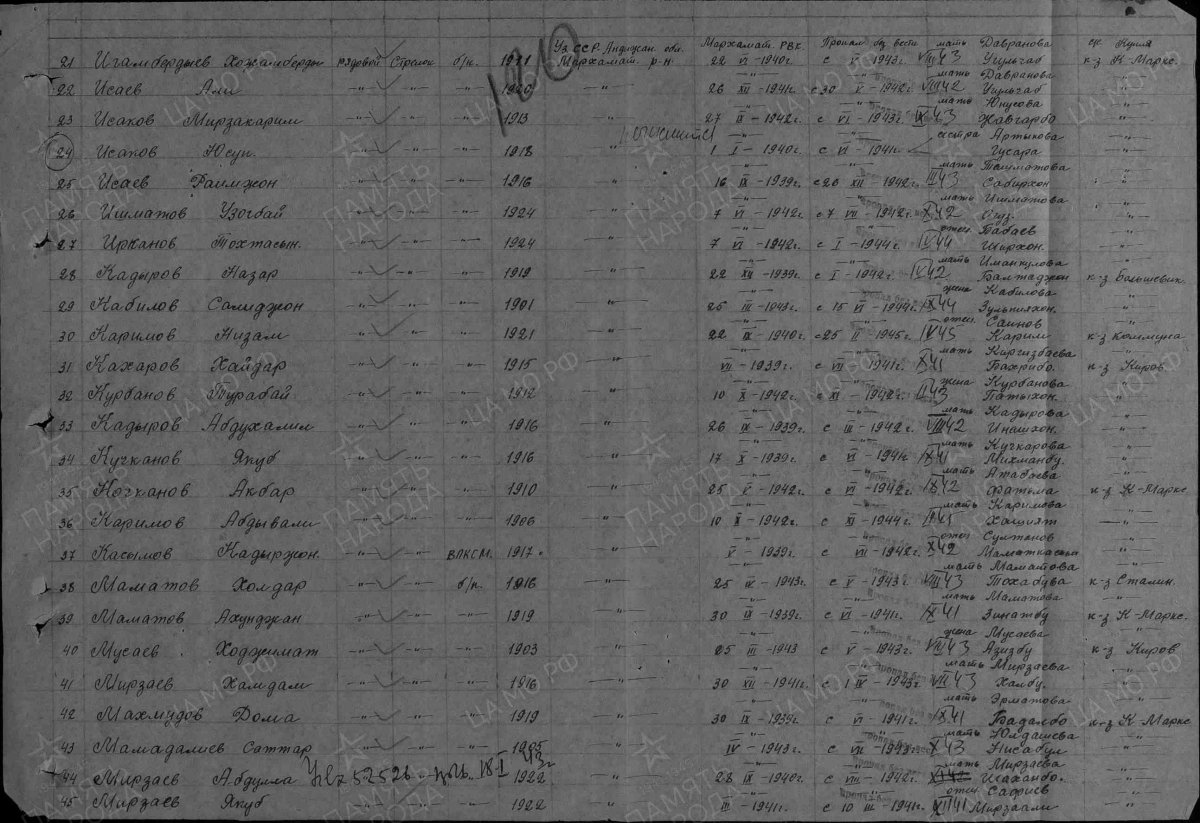 Уз ССР. Андижан. обл. Мархамат. РВК. Пропал без вести мать Давранова с/с Кулля
21 Игамбердыев Хожамберды рядовой Стрелок б/п. 1921 Мархамат р-н 22 VI -1940г. с V -1943г. VIII 43 Угульгаб к-з К-Маркс.
1210
мать Давранова
22 Исаев Али -"- -"- -"- 1920 -"- 26 XII -1941г. с 30 V -1942г. VIII 42 Угульгаб -"-
мать Юнусова
23 Исаков Мирзакарим -"- -"- -"- 1913 -"- 27 II -1942г. с VI -1943г. IX 43 Хавгарбо -"-
сестра Артыкова
24 Исаков Юсуп. -"- -"- -"- 1918 -"- 1 I -1940г. с VI -1941г. Гусара -"-
мать Ташматова
25 Исаев Раимжон -"- -"- -"- 1916 -"- 16 IX -1939г. с 26 XII -1942г. III 43 Сабирхон -"-
мать Ишматова
26 Ишматов Узогбай -"- -"- -"- 1924 -"- 7 VI -1942г. с 7 VII -1942г. X 42 Огуз. -"-
отец Бабаев
27 Ирканов Тохтасын. -"- -"- -"- 1924 -"- 7 VI -1942г. с I -1944г. IV 44 Ширхон. -"-
мать Иманкулова
28 Кадыров Назар -"- -"- -"- 1919 -"- 22 XII -1939г. с I -1942г. IV 42 Балтаджон к-з Большевик.
жена Кабилова
29 Кабилов Салиджон -"- -"- -"- 1901 -"- 25 III -1943г. с 15 VI -1944г. IX 44 Зульпияхон. -"-
отец Саинов
30 Каримов Низам -"- -"- -"- 1921 -"- 22 IX -1940г. с 25 II -1945г. IV 45 Карим к-з Коммуна
мать Киргизбаева
31 Кахаров Хайдар -"- -"- -"- 1915 -"- VII -1939г. с VI -1941г. XI 41 Бахрибо. к-з Киров
жена Курбанова
32 Курбанов Турабай -"- -"- -"- 1912 -"- 10 X -1942г. с XI -1942г. II 43 Патыхон. -"-
мать Кадырова
33 Кадыров Абдухалил -"- -"- -"- 1916 -"- 26 IX -1939г. с III -1942г. VIII 42 Инашхон. -"-
мать Кучкарова
34 Кучканов Якуб -"- -"- -"- 1916 -"- 17 X -1939г. с VI -1941г. IX 41 Михманбу. -"-
мать Атабаева
35 Кочканов Акбар -"- -"- -"- 1910 -"- 25 V -1942г. с VI -1942г. IX 42 Фатьма к-з К-Маркс
мать Каримова
36 Каримов Абдывали -"- -"- -"- 1906 -"- 10 X -1942г. с XI -1944г. II 45 Хашият -"-
отец Султанов
37 Касымов Кадыржон. -"- -"- ВЛКСМ. 1917. -"- X -1939г. с VII -1942г. X 42 Маматкасым -"-
мать Маматова
38 Маматов Холдар -"- -"- б/п. 1916 -"- 25 IX -1943г. с V -1943г. VIII 43 Тохабува к-з Сталин.
мать Маматова
39 Маматов Ахунджан -"- -"- -"- 1919 -"- 30 IX -1939г. с VI -1941г. X 41 Зинатбу к-з К-Маркс.
жена Мусаева
40 Мусаев. Ходжимат -"- -"- -"- 1903 -"- 25 III -1943 с V -1943г. VIII 43 Азизбу к-з Киров
мать Мирзаева
41 Мирзаев Хамдам -"- -"- -"- 1916 -"- 30 XII -1941г. с 1 IV -1943г. VII 43 Халбу. -"-
мать Эрматова
42 Махмудов Дома -"- -"- -"- 1919 -"- 30 IX -1939г. с VI -1941г. X 41 Бадалбо к-з К-Маркс
мать Юлдашева
43 Мамадалиев Саттар -"- -"- -"- 1905 -"- IV -1943г. с VII -1943г. X 43 Нисабул -"-
мать Мирзаева
44 Мирзаев Абдулла 1922 -"- 28 IX -1940г. с VIII -1942г. Шахонбо. -"-
отец Сафиев
45 Мирзаев Якуб -"- -"- -"- 1922 -"- III -1941г. с 10 III -1941г. XII 41 Мирзаали -"-
ПАМЯТЬ НАРОДА
ЦА МО РФ